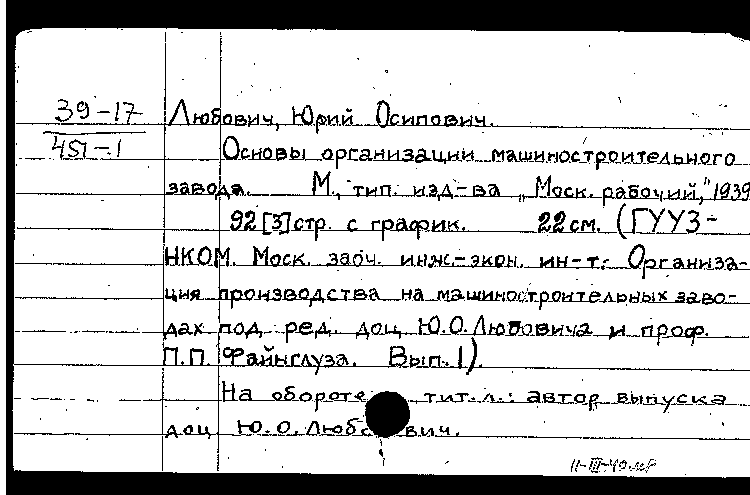 39-17
451-1
Любович, Юрий Осипович.
Основы организации машиностроительного
завода. М., тип. изд-ва „Моск. рабочий," 1939
92 [3] стр. с график. 22 см. (ГУУЗ-
НКОМ. Моск. заоч. инж.-экон. ин-т: Организа-
ция производства на машиностроительных заво-
дах под ред. доц Ю.О. Любовича и проф.
П.П. Файнглуза. Вып. 1).
На обороте тит. л.: автор выпуска
доц Ю.О. Любович.
11-III-40